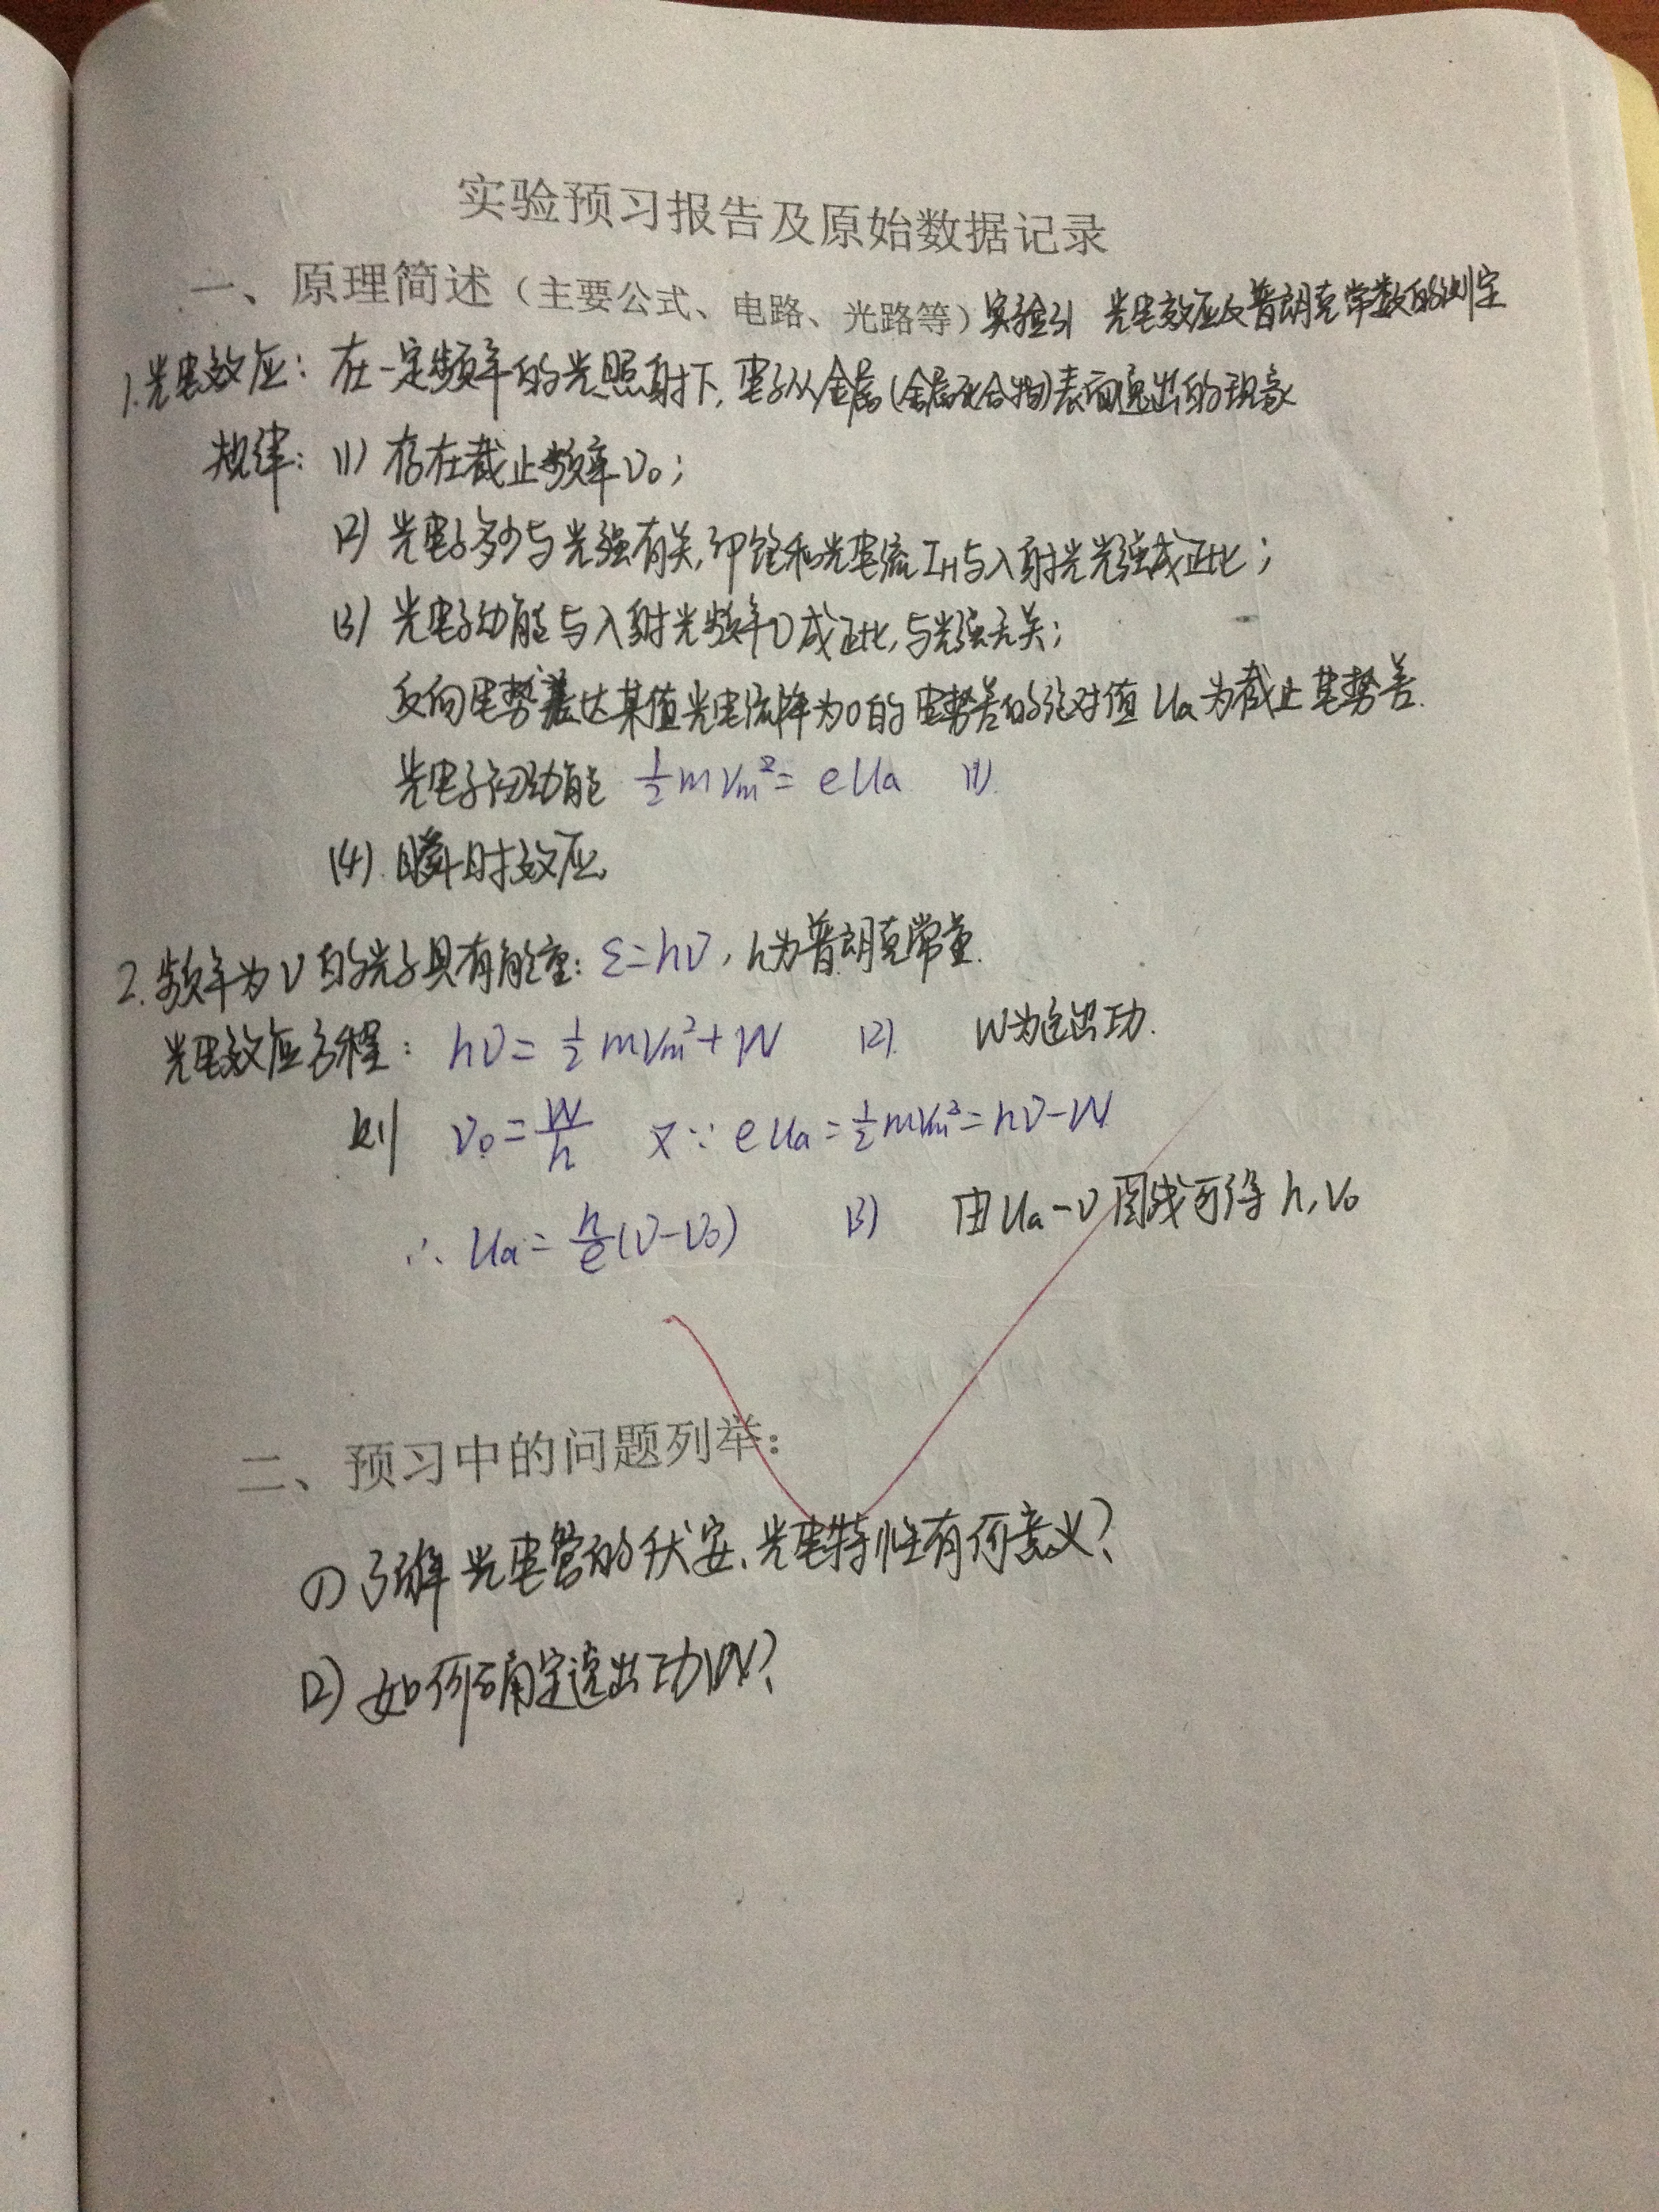 实验预习报告及原始数据记录
一、原理简述（主要公式、电路、光路等）实验31 光电效应及普朗克常数的测定
1.光电效应：在一定频率的光照射下，电子从金属(金属化合物)表面逸出的现象
规律：(1) 存在截止频率ν₀；
(2) 光电子多少与光强有关,即饱和光电流IH与入射光光强成正比；
(3) 光电子动能与入射光频率ν成正比,与光强无关；
反向电势差达某值光电流降为0的电势差的绝对值 Ua 为截止电势差.
光电子初动能 ½mVm²= eUa (1).
(4). 瞬时效应.
2.频率为ν的光子具有能量：ε=hν，h为普朗克常量.
光电效应方程：hν=½mVm²+W (2). W为逸出功.
则 ν₀=W/h 又∵ eUa=½mVm²=hν-W
∴ Ua=h/e(ν-ν₀) (3) 由Ua-ν图线可得 h,ν₀
二、预习中的问题列举：
(1) 了解光电管的伏安、光电特性有何意义？
(2) 如何确定逸出功W？